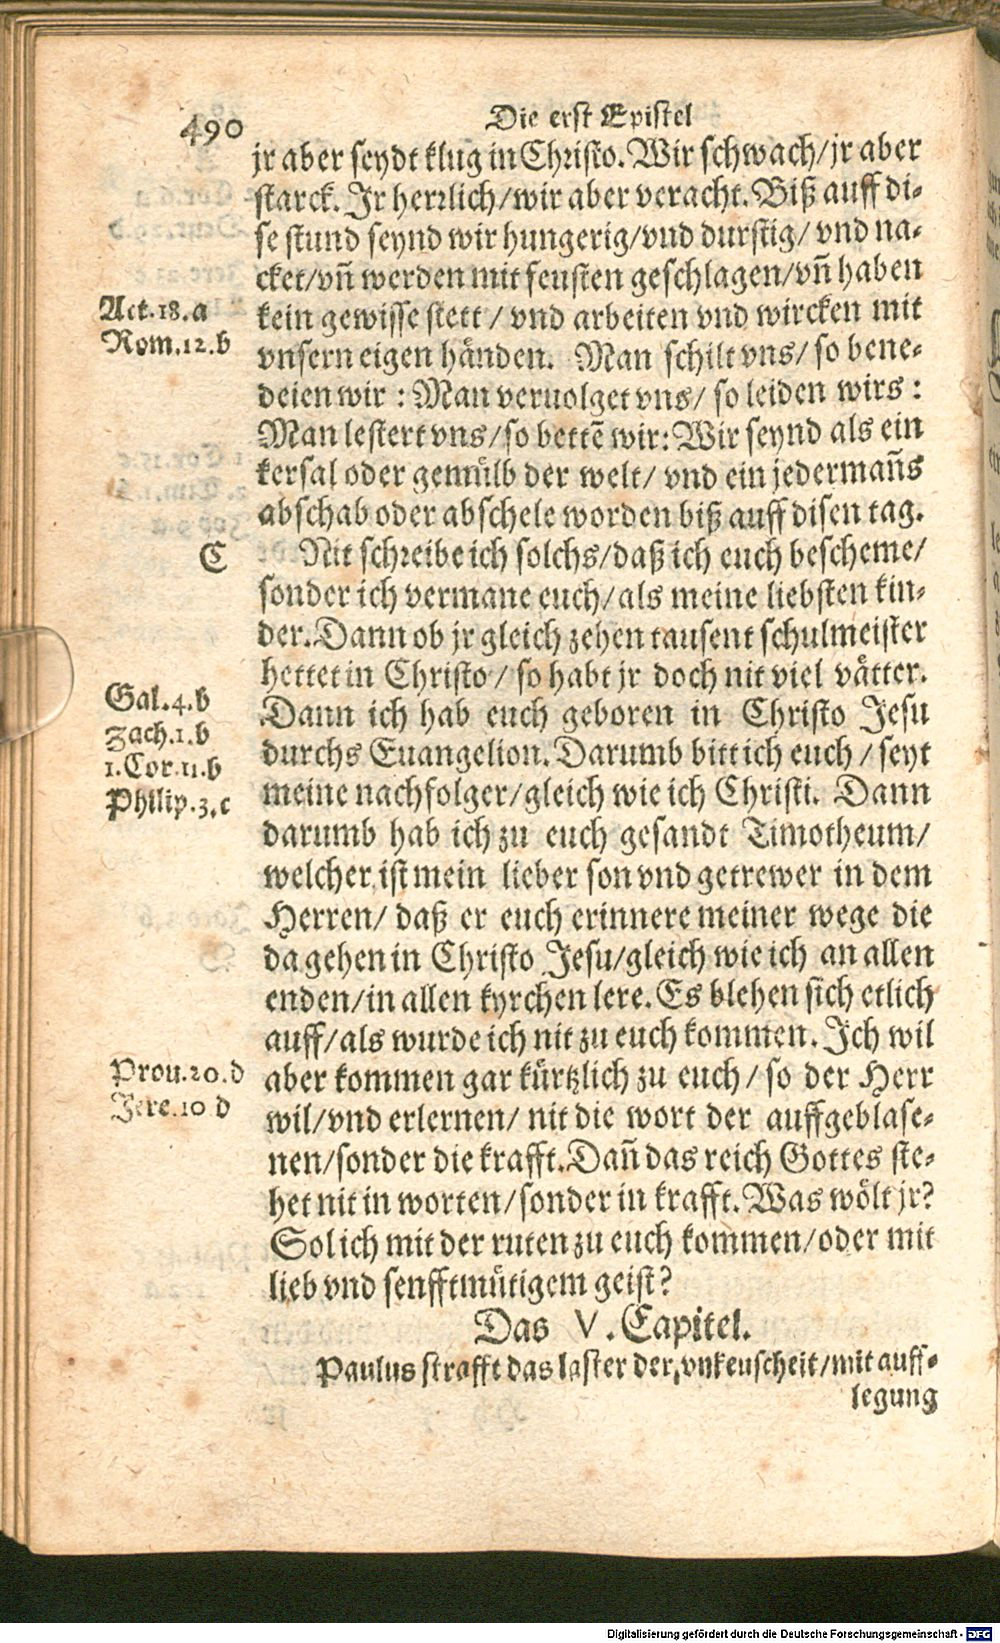 490
Die erst Epistel
jr aber seydt klug in Christo. Wir schwach/ jr aber
starck. Jr herrlich/ wir aber veracht. Biß auff di-
se stund seynd wir hungerig/ vnd durstig/ vnd na-
cket/ vñ werden mit feusten geschlagen/ vñ haben
Act.18.a
kein gewisse stett / vnd arbeiten vnd wircken mit
Rom.12.b
vnsern eigen händen. Man schilt vns/ so bene-
deien wir : Man veruolget vns/ so leiden wirs :
Man lestert vns/ so bettẽ wir: Wir seynd als ein
kersal oder gemülb der welt/ vnd ein jedermañs
abschab oder abschele worden biß auff disen tag.
C
Nit schreibe ich solchs/ daß ich euch bescheme/
sonder ich vermane euch/ als meine liebsten kin-
der. Dann ob jr gleich zehen tausent schulmeister
hettet in Christo / so habt jr doch nit viel vätter.
Gal.4.b
Dann ich hab euch geboren in Christo Jesu
Zach.1.b
durchs Euangelion. Darumb bitt ich euch / seyt
1.Cor.11.b
meine nachfolger/ gleich wie ich Christi. Dann
Philip.3.c
darumb hab ich zu euch gesandt Timotheum/
welcher ist mein lieber son vnd getrewer in dem
Herren/ daß er euch erinnere meiner wege die
da gehen in Christo Jesu/ gleich wie ich an allen
enden/ in allen kyrchen lere. Es blehen sich etlich
auff/ als wurde ich nit zu euch kommen. Ich wil
Prou.20.d
aber kommen gar kürtzlich zu euch / so der Herr
Jere.10 d
wil/ vnd erlernen/ nit die wort der auffgeblase-
nen/ sonder die krafft. Dañ das reich Gottes ste-
het nit in worten/ sonder in krafft. Was wölt jr?
Sol ich mit der ruten zu euch kommen/ oder mit
lieb vnd senfftmütigem geist?
Das V. Capitel.
Paulus strafft das laster der vnkeuscheit/ mit auff-
legung
Digitalisierung gefördert durch die Deutsche Forschungsgemeinschaft - DFG